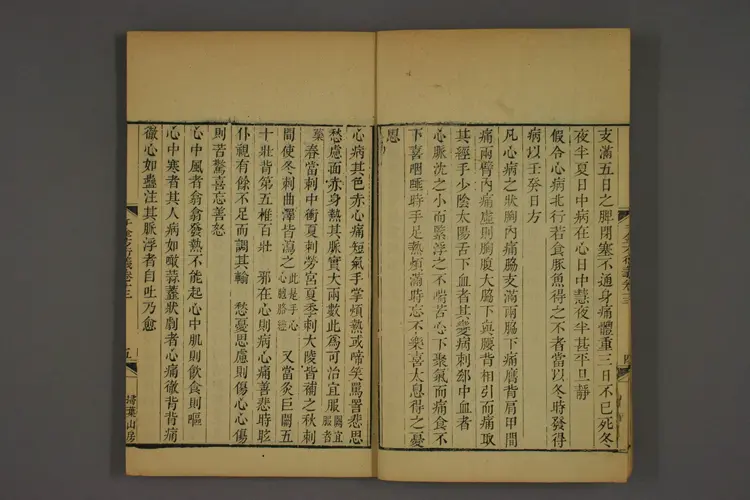 支滿五日之脾閉塞不通身痛體重三日不已死冬
夜半夏日中病在心日中慧夜半甚平旦靜
假令心病北行若食豚魚得之不者當以冬時發得
病以壬癸日方
凡心病之狀胸內痛脇支滿兩脇下痛膺背肩甲間
痛兩臂內痛虛則胸腹大脇下與腰背相引而痛取
其經手少陰太陽舌下血者其變病刺郄中血者
心脈沈之小而緊浮之不喘苦心下聚氣而痛食不
下喜咽唾時手足熱煩滿時忘不樂喜太息得之憂
思
心病其色赤心痛短氣手掌煩熱或啼笑罵詈悲思
愁慮面赤身熱其脈實大而數此為可治宜服
春當刺中衝夏刺勞宮季夏刺大陵皆補之秋刺
間使冬刺曲澤皆瀉之此是手心心胞絡經又當灸巨闕五
十壯背第五椎百壯 邪在心則病心痛善悲時眩
仆視有餘不足而調其輸 愁憂思慮則傷心心傷
則苦驚喜忘善怒
心中風者翕翕發熱不能起心中肌則飲食則嘔
心中寒者其人病如噉蒜虀狀劇者心痛徹背背痛
徹心如蠱注其脈浮者自吐乃愈
五
掃葉山房